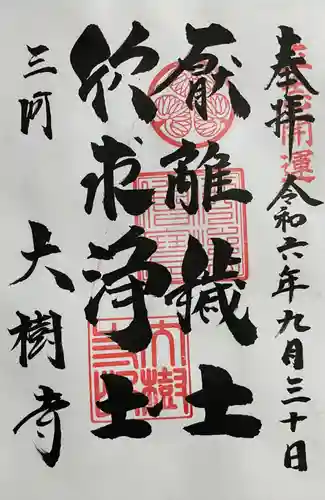 奉拝
令和六年九月三十日
厭離穢土
欣求浄土
三河
大樹寺
開運
大樹